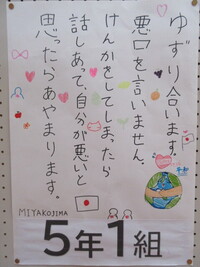 ゆずり合います。
悪口を言いません。
けんかをしてしまったら
話しあって、自分が悪いと
思ったらあやまります。
MIYAKOJIMA
5年1組